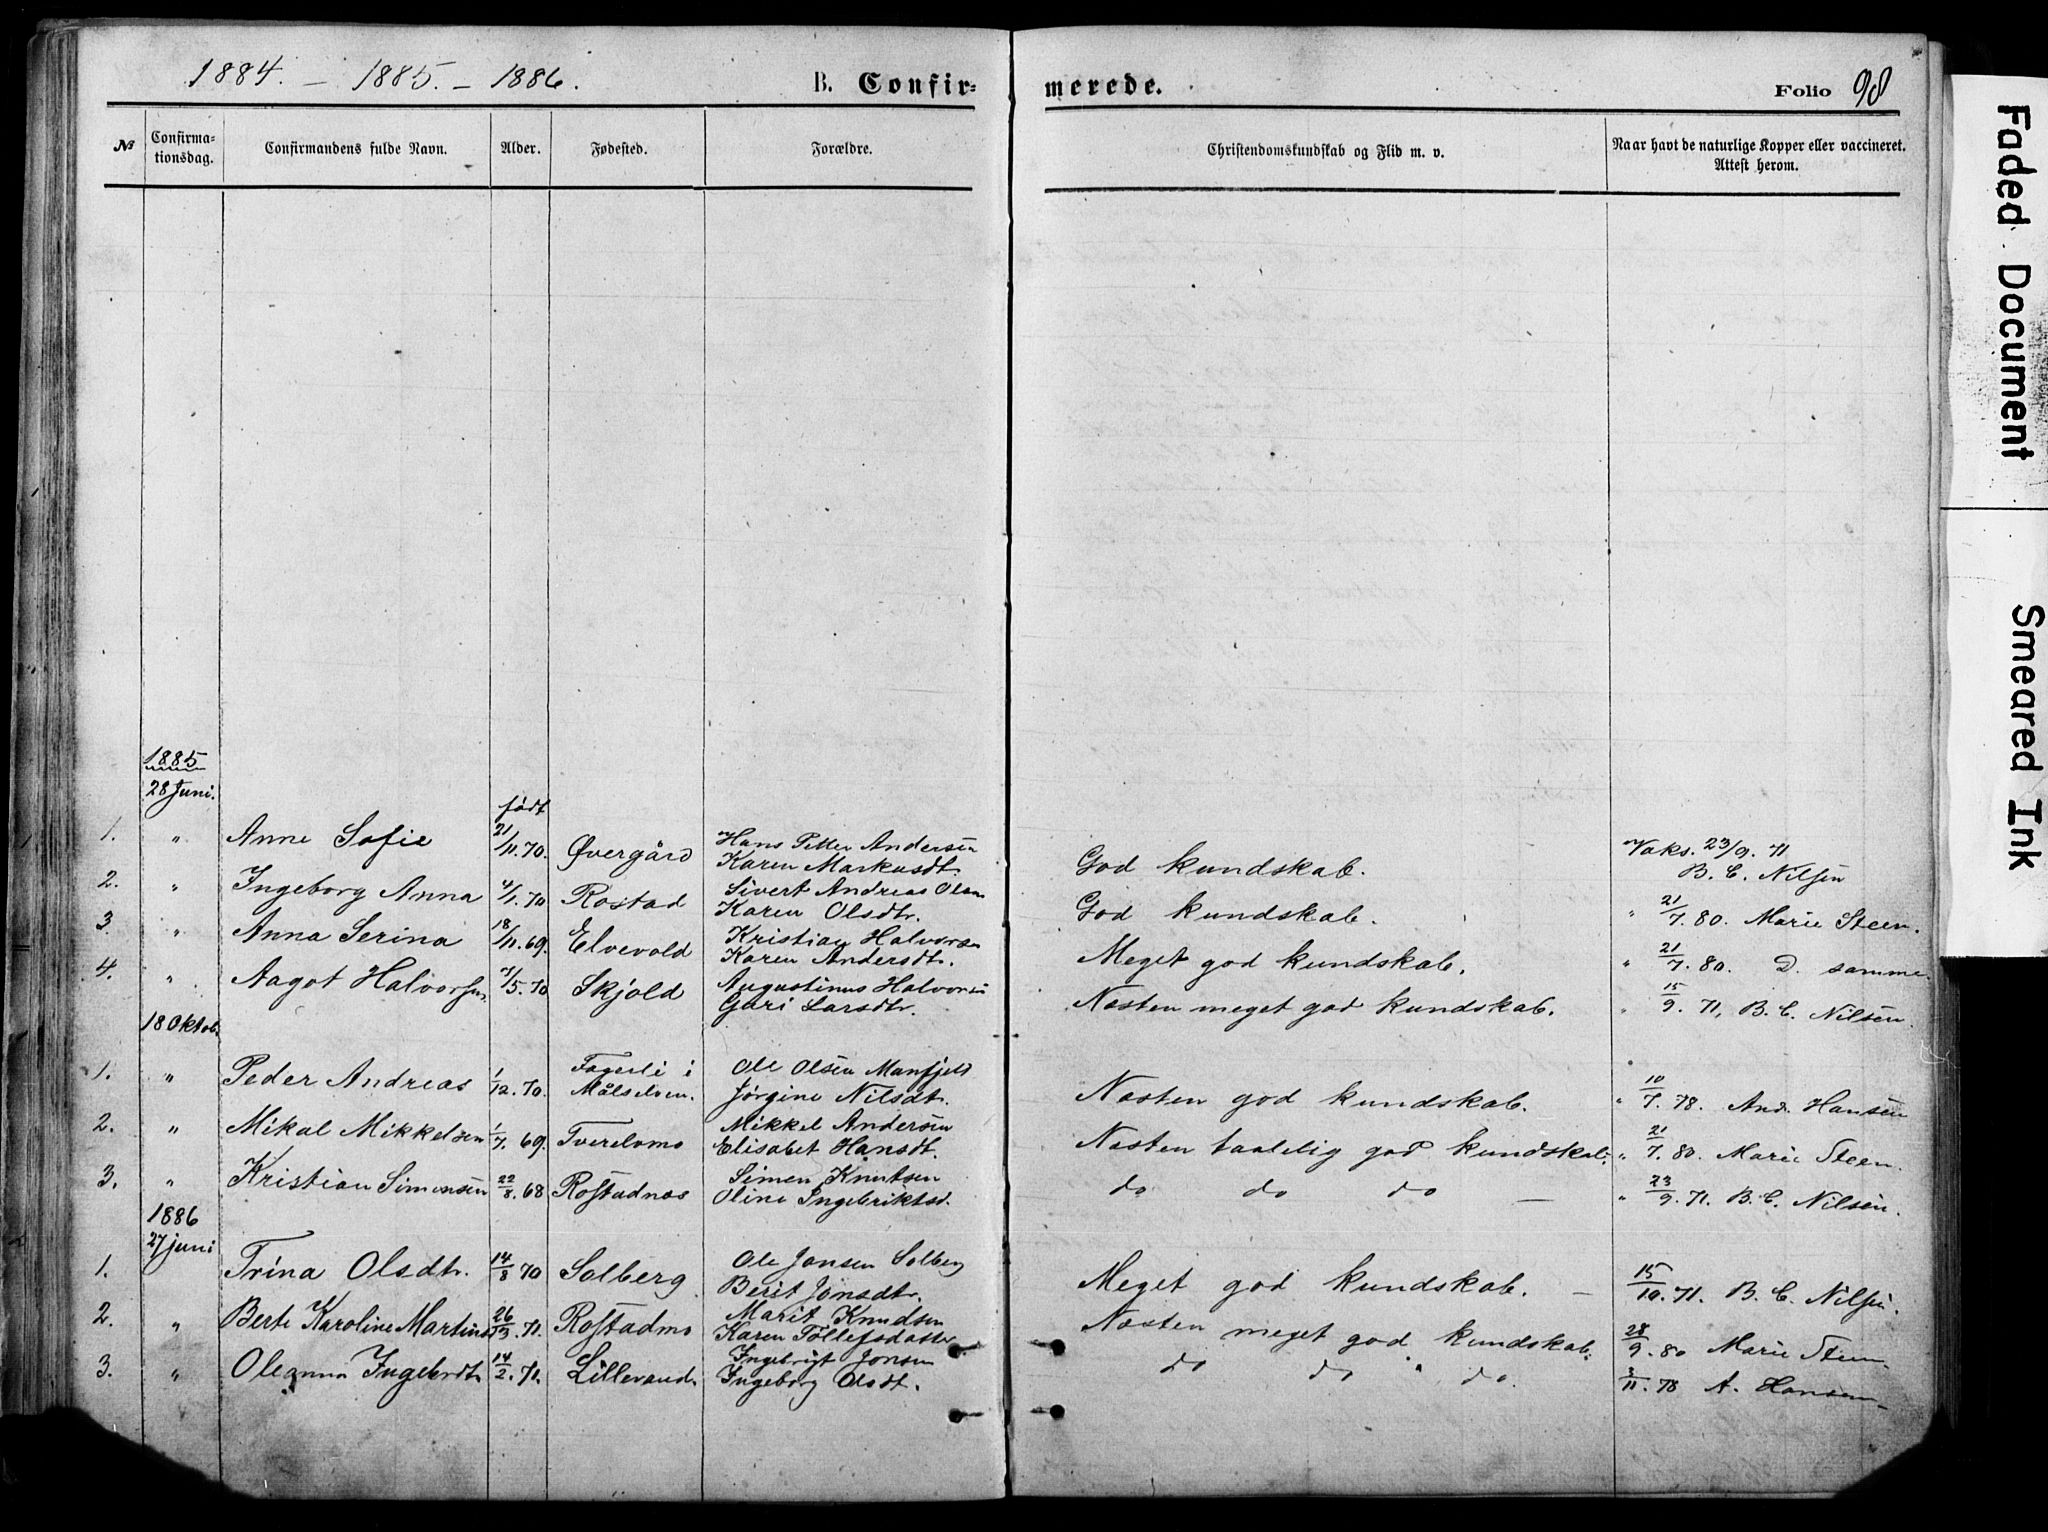 1884. - 1885. - 1886. B. Confir- merede. Folio 98
№ Confirma-tionsdag. Confirmandens fulde Navn. Alder. Fødested. Forældre. Christendomskundskab og Flid m. v. Naar havt de naturlige Kopper eller vaccineret. Attest herom.
1885
28 Juni.
født
1. " Anne Sofie 21/11.70. Øvergård Hans Petter Andersen God kundskab. Vaks. 23/9. 71
Karen Markusdt. B. C. Nilsen
2. " Ingeborg Anna 4/1.70 Rostad Sivert Andreas Olsen God kundskab. " 21/7. 80. Marie Steen.
Karen Olsdtr.
3. " Anna Serina 18/11.69. Elvevold Kristian Halvorsen Meget god kundskab. " 21/7. 80. D. samme
Karen Andersdt.
4. " Aagot Halvorsen /5.70 Skjold Augustinus Halvorsen Næsten meget god kundskab. " 15/9. 71. B. C. Nilsen.
Guri Larsdtr.
18 Oktob.
1. " Peder Andreas 1/12.70. Fagerli i Ole Olsen
Målselven. Jørgine Nilsdt. Næsten god kundskab. " 10/7. 78. And. Hansen
2. " Mikal Mikkelsen 1/7. 69. Tverelvmo Mikkel Andersen Næsten taalelig god kundskab. " 21/7. 80. Marie Steen.
Elisabet Hansdt.
3. " Kristian Simonsen 22/8. 68 Rostadnæs Simen Knutsen do do do — " 23/9. 71. B. C. Nilsen.
Oline Ingebriktsd.
1886
27 juni
1. Trina Olsdtr. 14/8 70 Solberg Ole Jonsen Solberg Meget god kundskab. — 15/10. 71. B. C. Nilsen.
Berit Jonsdtr.
2. " Berte Karoline 26/3. 71. Rostadmo Marit Knudsen Næsten meget god kundskab. 28/9. 80 Marie Steen
Karen Tollefsdatter
3. " Oleanna Ingebrdt. 14/2. 71. Lillevand. Ingebrigt Jonsen do do " do. 3/11. 78 A. Hansen
Ingeborg Olsdt.
Faded Document
Smeared Ink